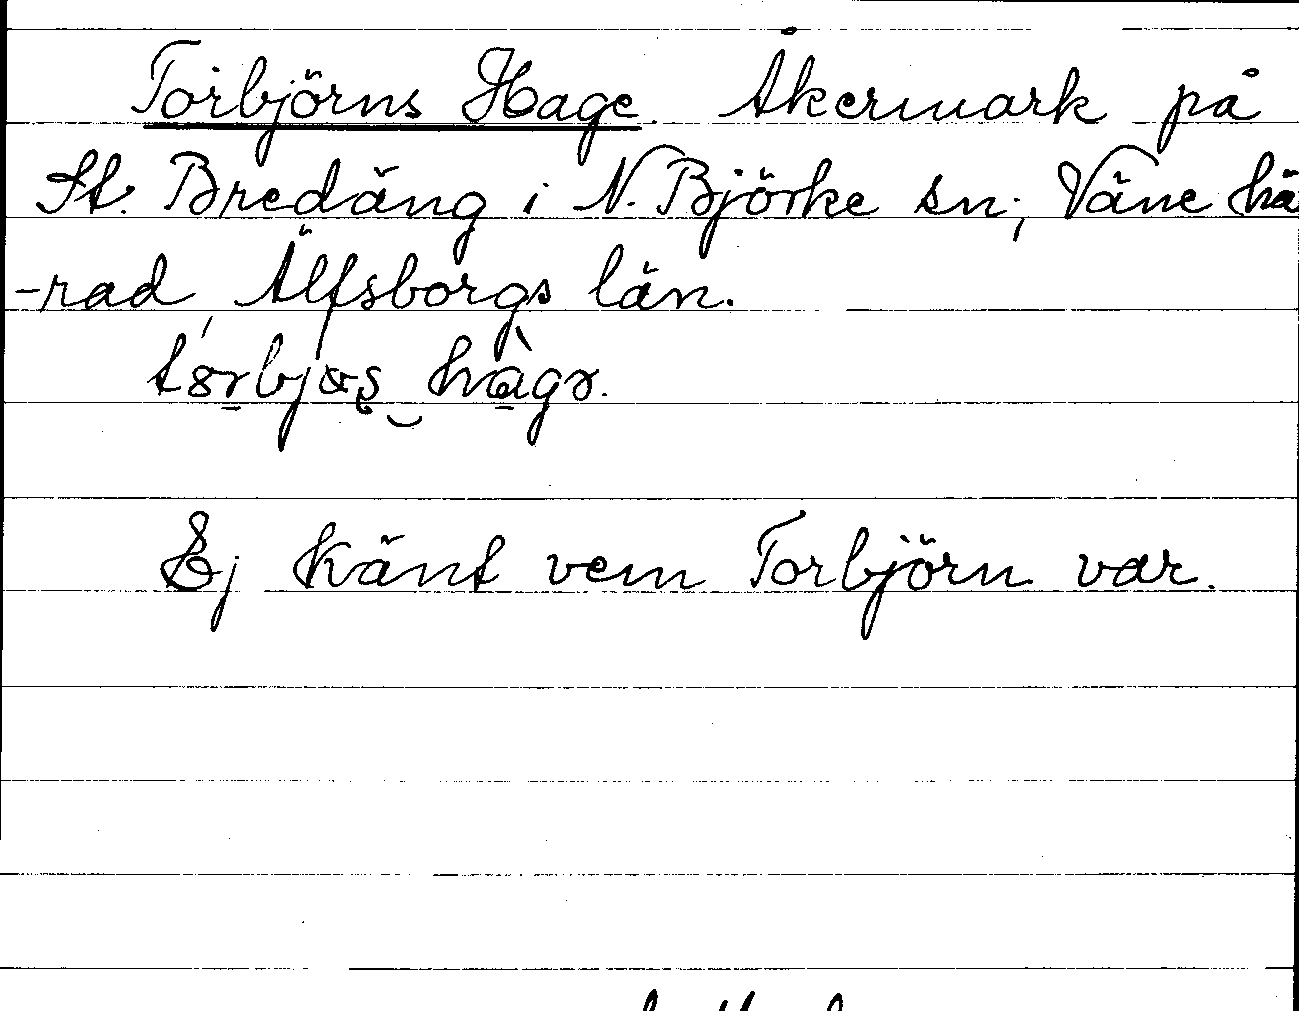 Torbjörns Hage. Åkermark på
St. Bredäng i N. Björke sn; Väne hä
-rad, Älfsborgs län.
Ej känt vem Torbjörn var.